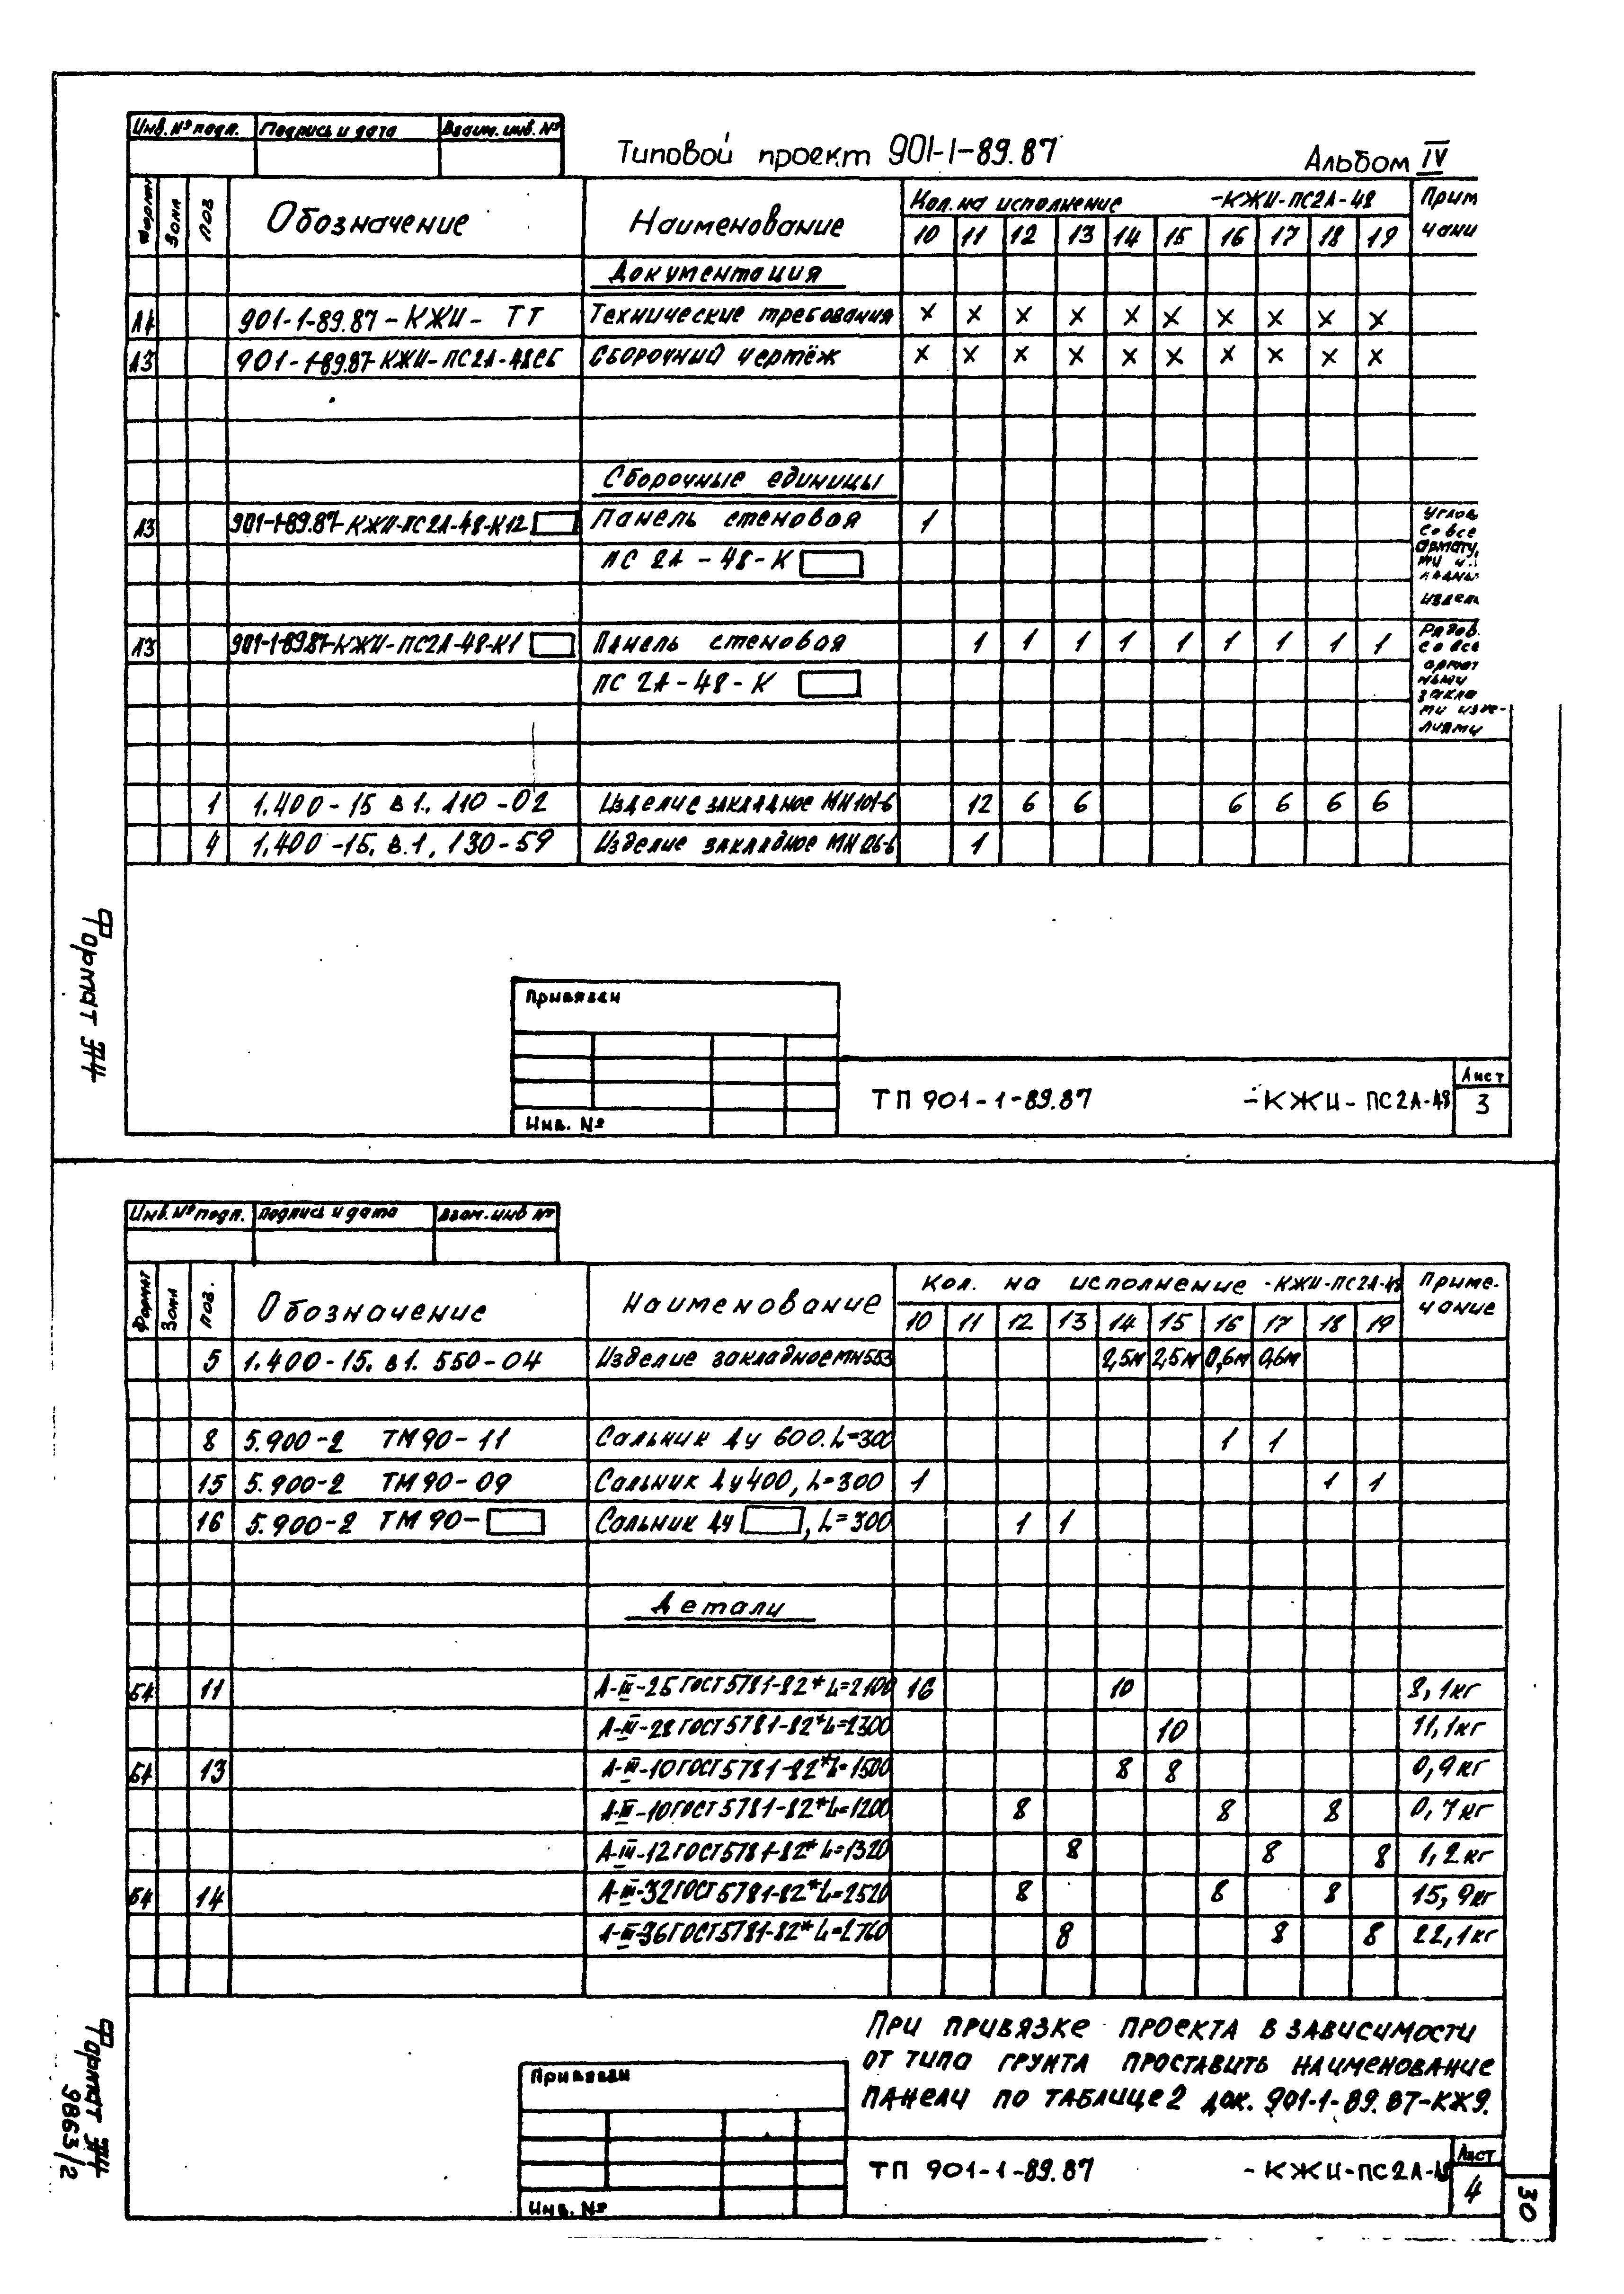 Инв. № подл. Подпись и дата Взаим. инв. №
Типовой проект 901-1-89.87 Альбом IV
Формат Зона Поз Обозначение Наименование Кол. на исполнение -КЖИ-ПС2А-48 Прим
10 11 12 13 14 15 16 17 18 19 чани
Документация
А4 901-1-89.87-КЖИ- ТТ Технические требования × × × × × × × × × ×
А3 901-1-89.87-КЖИ-ПС2А-48СБ Сборочный чертёж × × × × × × × × × ×
Сборочные единицы
А3 901-1-89.87-КЖИ-ПС2А-48-К12 Панель стеновая 1 углов
со все
ПС 2А-48-К армату,
ми и.
кладны
издел
А3 901-1-89.87-КЖИ-ПС2А-48-К1 Панель стеновая 1 1 1 1 1 1 1 1 1 Рядов.
со все
ПС 2А-48-К армат
ными
закла
ми изде-
лиями
1 1.400-15 в1. 110-02 Изделие закладное МН101-6 12 6 6 6 6 6 6
4 1.400-15. в.1. 130-59 Изделие закладное 1
Формат А4
Привязан
ТП 901-1-89.87 -КЖИ-ПС2А-48 Лист
3
Инв. №
Инв. № подл. Подпись и дата Взам. инв №
Формат Зона Поз. Обозначение Наименование Кол. на исполнение -КЖИ-ПС2А-48 Приме-
10 11 12 13 14 15 16 17 18 19 чание
5 1.400-15. в1. 550-04 Изделие закладное МН553 2,5м 2,5м 0,6м 0,6м
8 5.900-2 ТМ90-11 Сальник Ду 600. L=300 1 1
15 5.900-2 ТМ90-09 Сальник Ду400, L=300 1 1 1
16 5.900-2 ТМ90- Сальник Ду , L=300 1 1
Детали
БЧ 11 А-III-25 ГОСТ 5781-82* L=2100 16 10 8,1кг
А-III-28 ГОСТ 5781-82* L=2300 10 11,1кг
БЧ 13 А-III-10 ГОСТ 5781-82* L=1500 8 8 0,9кг
А-III-10 ГОСТ 5781-82* L=1200 8 8 8 0,7кг
А-III-12 ГОСТ 5781-82* L=1320 8 8 8 1,2кг
БЧ 14 А-III-32 ГОСТ 5781-82* L=2520 8 8 8 15,9кг
А-III-36 ГОСТ 5781-82* L=2760 8 8 8 22,1кг
При привязке проекта в зависимости
от типа грунта проставить наименование
панели по таблице 2 док. 901-1-89.87-КЖ9.
Формат А4
9863/2
Привязан
ТП 901-1-89.87 -КЖИ-ПС2А-48 Лист
4
Инв. №
30